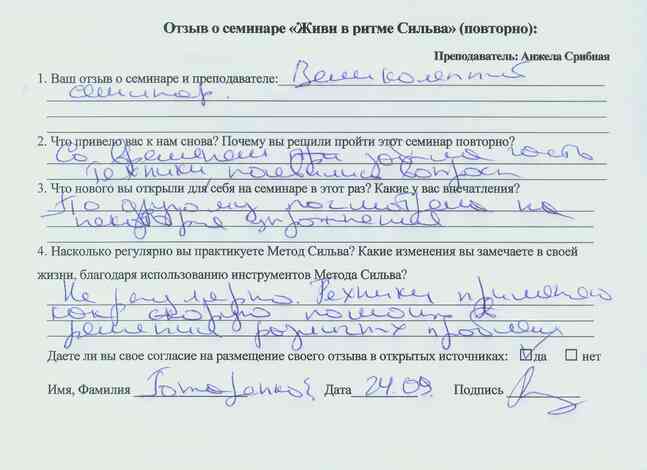 Отзыв о семинаре «Живи в ритме Сильва» (повторно):
Преподаватель: Анжела Срибная
1. Ваш отзыв о семинаре и преподавателе: Великолепный
семинар.
2. Что привело вас к нам снова? Почему вы решили пройти этот семинар повторно?
Со временем часть
техники появились вопросы
3. Что нового вы открыли для себя на семинаре в этот раз? Какие у вас впечатления?
По другому посмотрела на
некоторые упражнения
4. Насколько регулярно вы практикуете Метод Сильва? Какие изменения вы замечаете в своей
жизни, благодаря использованию инструментов Метода Сильва?
Не регулярно. Техники применяю
как скорую помощь в
решении различных проблем
Даете ли вы свое согласие на размещение своего отзыва в открытых источниках: да нет
Имя, Фамилия Дата 24.09. Подпись